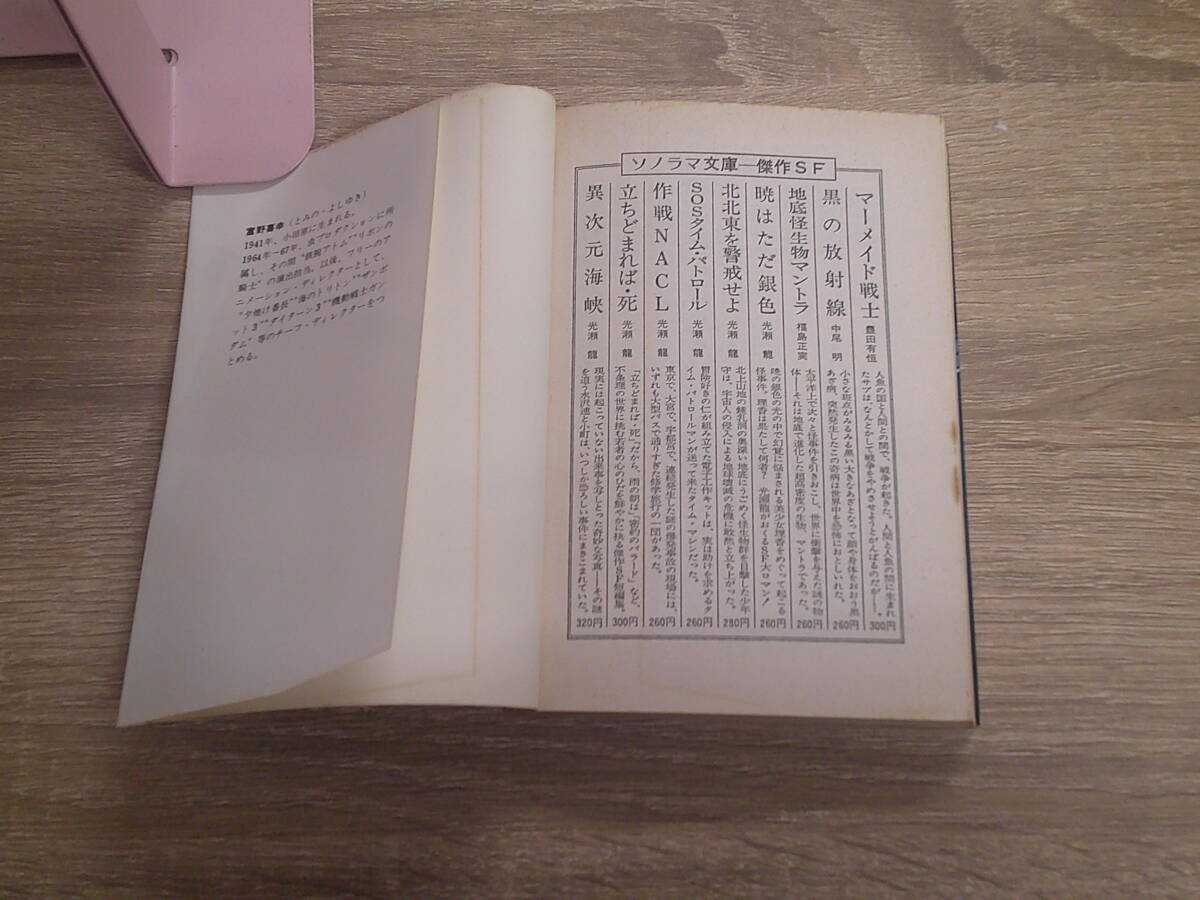 富野喜幸（とみの・よしゆき）
1941年、小田原に生まれる。
1964年～67年、虫プロダクションに所
属し、その間“鉄腕アトム”“リボンの
騎士”の演出担当。以後、フリーのア
ニメーション・ディレクターとして、
“夕焼け番長”“海のトリトン”“ザンボ
ット3”“ダイターン3”“機動戦士ガン
ダム”等のチーフ・ディレクターをつ
とめる。
ソノラマ文庫―傑作SF
マーメイド戦士 豊田有恒
人魚の国と人間との間で、戦争が起きた。人間と人魚の間に生まれ
たサブは、なんとかして戦争をやめさせようとがんばるのだが――。
300円
黒の放射線 中尾 明
小さな斑点がみるみる黒い大きなあざとなって顔や身体をおおう黒
あざ病。突然発生したこの奇病は世界中を恐怖におとしいれた。
260円
地底怪生物マントラ 福島正実
太平洋上で次々と怪事件を引きおこし、世界に衝撃を与えた謎の物
体――それは地底で進化した超高密度の生物、マントラであった。
260円
暁はただ銀色 光瀬 龍
暁の銀色の光の中で幻覚に悩まされる美少女理香をめぐって起こる
怪事件。理香は果たして何者？ 光瀬龍がおくるSF大ロマン！
260円
北北東を警戒せよ 光瀬 龍
北上山地の鍾乳洞の奥深い地底にうごめく怪生物群を目撃した少年
守は、宇宙人の侵入による地球壊滅の危機に敢然と立ち上がった。
280円
SOSタイム・パトロール 光瀬 龍
冒険好きの仁が組み立てた電子工作キットは、実は助けを求めるタ
イム・パトロールマンが送って来たタイム・マシンだった。
260円
作戦NACL 光瀬 龍
東京で、大宮で、宇都宮で、連続発生した謎の爆発事故の現場には、
いずれも大型バスで通りすぎた修学旅行の一団があった。
260円
立ちどまれば・死 光瀬 龍
「立ちどまれば・死」「だから、雨の朝は」「密約のバラード」など、
不条理の世界に挑む若者の心のひだを鮮やかに抉る傑作SF短編集。
300円
異次元海峡 光瀬 龍
現実には起こっていない出来事を写しとった奇妙な写真――その謎
を追う水沢達と小町は、いつしか恐ろしい事件にまきこまれていた。
320円